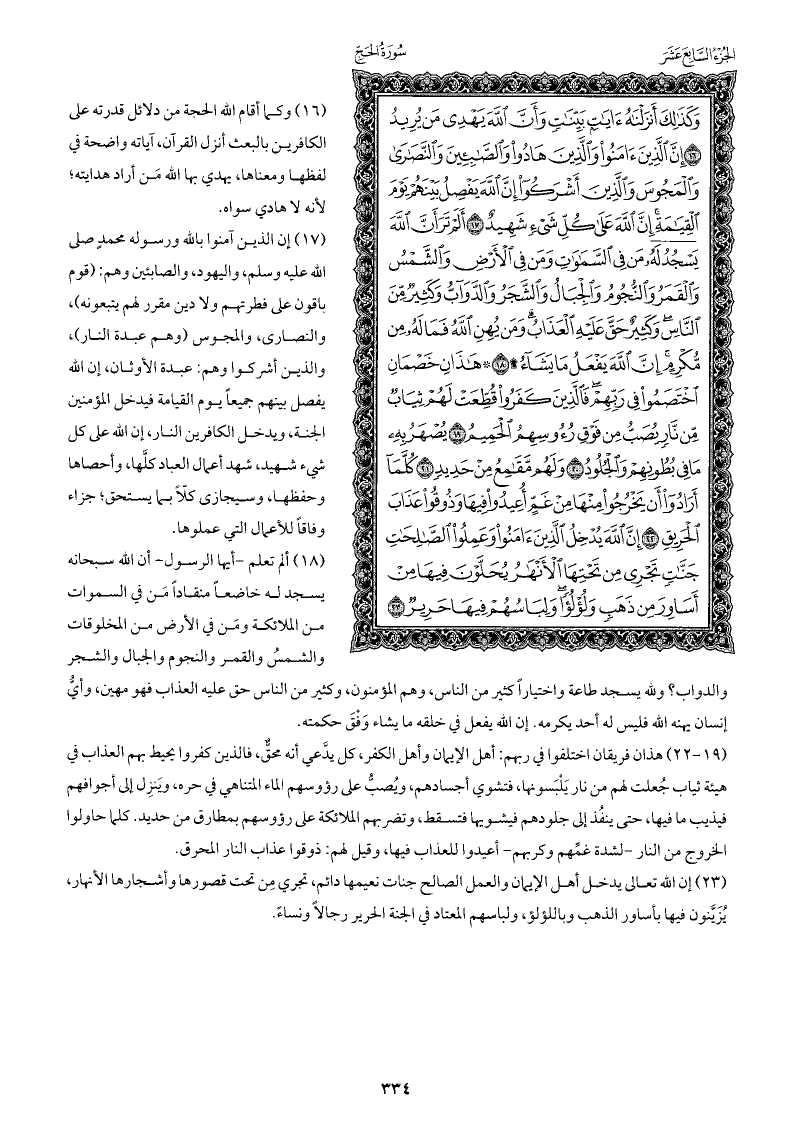 الجزء السابع عشر
سورة الحج
وَكَذَٰلِكَ أَنزَلْنَٰهُ ءَايَٰتٍۭ بَيِّنَٰتٍ وَأَنَّ ٱللَّهَ يَهْدِى مَن يُرِيدُ
۝١٦ إِنَّ ٱلَّذِينَ ءَامَنُوا۟ وَٱلَّذِينَ هَادُوا۟ وَٱلصَّٰبِـِٔينَ وَٱلنَّصَٰرَىٰ
وَٱلْمَجُوسَ وَٱلَّذِينَ أَشْرَكُوٓا۟ إِنَّ ٱللَّهَ يَفْصِلُ بَيْنَهُمْ يَوْمَ
ٱلْقِيَٰمَةِ ۚ إِنَّ ٱللَّهَ عَلَىٰ كُلِّ شَىْءٍ شَهِيدٌ ۝١٧ أَلَمْ تَرَ أَنَّ ٱللَّهَ
يَسْجُدُ لَهُۥ مَن فِى ٱلسَّمَٰوَٰتِ وَمَن فِى ٱلْأَرْضِ وَٱلشَّمْسُ
وَٱلْقَمَرُ وَٱلنُّجُومُ وَٱلْجِبَالُ وَٱلشَّجَرُ وَٱلدَّوَآبُّ وَكَثِيرٌ مِّنَ
ٱلنَّاسِ ۖ وَكَثِيرٌ حَقَّ عَلَيْهِ ٱلْعَذَابُ ۗ وَمَن يُهِنِ ٱللَّهُ فَمَا لَهُۥ مِن
مُّكْرِمٍ ۚ إِنَّ ٱللَّهَ يَفْعَلُ مَا يَشَآءُ ۩ ۝١٨ ۞ هَٰذَانِ خَصْمَانِ
ٱخْتَصَمُوا۟ فِى رَبِّهِمْ ۖ فَٱلَّذِينَ كَفَرُوا۟ قُطِّعَتْ لَهُمْ ثِيَابٌ
مِّن نَّارٍ يُصَبُّ مِن فَوْقِ رُءُوسِهِمُ ٱلْحَمِيمُ ۝١٩ يُصْهَرُ بِهِۦ
مَا فِى بُطُونِهِمْ وَٱلْجُلُودُ ۝٢٠ وَلَهُم مَّقَٰمِعُ مِنْ حَدِيدٍ ۝٢١ كُلَّمَآ
أَرَادُوٓا۟ أَن يَخْرُجُوا۟ مِنْهَا مِنْ غَمٍّ أُعِيدُوا۟ فِيهَا وَذُوقُوا۟ عَذَابَ
ٱلْحَرِيقِ ۝٢٢ إِنَّ ٱللَّهَ يُدْخِلُ ٱلَّذِينَ ءَامَنُوا۟ وَعَمِلُوا۟ ٱلصَّٰلِحَٰتِ
جَنَّٰتٍ تَجْرِى مِن تَحْتِهَا ٱلْأَنْهَٰرُ يُحَلَّوْنَ فِيهَا مِنْ
أَسَاوِرَ مِن ذَهَبٍ وَلُؤْلُؤًا ۖ وَلِبَاسُهُمْ فِيهَا حَرِيرٌ ۝٢٣
(١٦) وكما أقام الله الحجة من دلائل قدرته على
الكافرين بالبعث أنزل القرآن، آياته واضحة في
لفظها ومعناها، يهدي بها الله مَن أراد هدايته؛
لأنه لا هادي سواه.
(١٧) إن الذين آمنوا بالله ورسوله محمدٍ صلى
الله عليه وسلم، واليهود، والصابئين وهم: (قوم
باقون على فطرتهم ولا دين مقرر لهم يتبعونه)،
والنصارى، والمجوس (وهم عبدة النار)،
والذين أشركوا وهم: عبدة الأوثان، إن الله
يفصل بينهم جميعاً يوم القيامة فيدخل المؤمنين
الجنة، ويدخل الكافرين النار، إن الله على كل
شيء شهيد، شهد أعمال العباد كلَّها، وأحصاها
وحفظها، وسيجازى كلّاً بما يستحق؛ جزاء
وفاقاً للأعمال التي عملوها.
(١٨) ألم تعلم -أيها الرسول- أن الله سبحانه
يسجد له خاضعاً منقاداً مَن في السموات
من الملائكة ومَن في الأرض من المخلوقات
والشمسُ والقمر والنجوم والجبال والشجر
والدواب؟ ولله يسجد طاعة واختياراً كثير من الناس، وهم المؤمنون، وكثير من الناس حق عليه العذاب فهو مهين، وأيُّ
إنسان يهنه الله فليس له أحد يكرمه. إن الله يفعل في خلقه ما يشاء وَفْقَ حكمته.
(١٩-٢٢) هذان فريقان اختلفوا في ربهم: أهل الإيمان وأهل الكفر، كل يدَّعي أنه محقٌّ، فالذين كفروا يحيط بهم العذاب في
هيئة ثياب جُعلت لهم من نار يَلْبَسونها، فتشوي أجسادهم، ويُصبُّ على رؤوسهم الماء المتناهي في حره، ويَنزِل إلى أجوافهم
فيذيب ما فيها، حتى ينفُذ إلى جلودهم فيشويها فتسقط، وتضربهم الملائكة على رؤوسهم بمطارق من حديد. كلما حاولوا
الخروج من النار -لشدة غمِّهم وكربهم- أعيدوا للعذاب فيها، وقيل لهم: ذوقوا عذاب النار المحرق.
(٢٣) إن الله تعالى يدخل أهل الإيمان والعمل الصالح جنات نعيمها دائم، تجري مِن تحت قصورها وأشجارها الأنهار،
يُزَيَّنون فيها بأساور الذهب وباللؤلؤ، ولباسهم المعتاد في الجنة الحرير رجالاً ونساءً.
٣٣٤